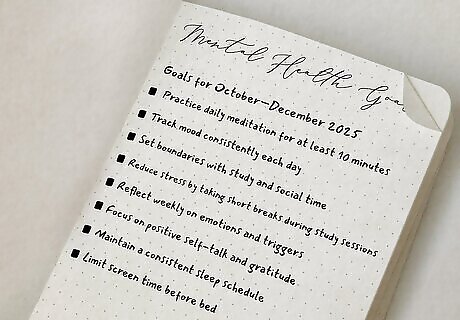 Mental Health
Goals for October–December 2025
Practice daily meditation for at least 10 minutes
Track mood consistently each day
Set boundaries with study and social time
Reduce stress by taking short breaks during study sessions
Reflect weekly on emotions and triggers
Focus on positive self-talk and gratitude
Maintain a consistent sleep schedule
Limit screen time before bed